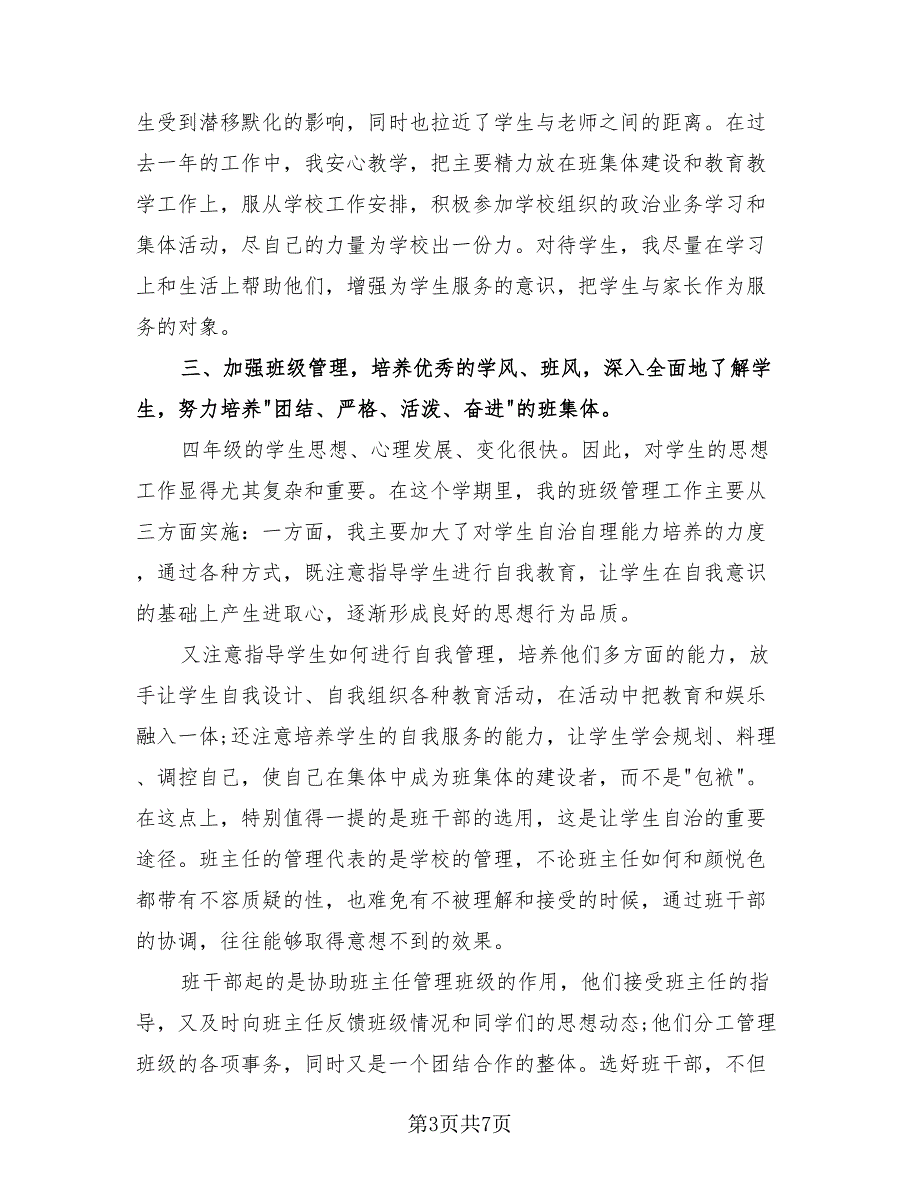 生受到潜移默化的影响，同时也拉近了学生与老师之间的距离。在过
去一年的工作中，我安心教学，把主要精力放在班集体建设和教育教
学工作上，服从学校工作安排，积极参加学校组织的政治业务学习和
集体活动，尽自己的力量为学校出一份力。对待学生，我尽量在学习
上和生活上帮助他们，增强为学生服务的意识，把学生与家长作为服
务的对象。
三、加强班级管理，培养优秀的学风、班风，深入全面地了解学
生，努力培养"团结、严格、活泼、奋进"的班集体。
四年级的学生思想、心理发展、变化很快。因此，对学生的思想
工作显得尤其复杂和重要。在这个学期里，我的班级管理工作主要从
三方面实施：一方面，我主要加大了对学生自治自理能力培养的力度
，通过各种方式，既注意指导学生进行自我教育，让学生在自我意识
的基础上产生进取心，逐渐形成良好的思想行为品质。
又注意指导学生如何进行自我管理，培养他们多方面的能力，放
手让学生自我设计、自我组织各种教育活动，在活动中把教育和娱乐
融入一体;还注意培养学生的自我服务的能力，让学生学会规划、料理
、调控自己，使自己在集体中成为班集体的建设者，而不是"包袱"。
在这点上，特别值得一提的是班干部的选用，这是让学生自治的重要
途径。班主任的管理代表的是学校的管理，不论班主任如何和颜悦色
都带有不容质疑的性，也难免有不被理解和接受的时候，通过班干部
的协调，往往能够取得意想不到的效果。
班干部起的是协助班主任管理班级的作用，他们接受班主任的指
导，又及时向班主任反馈班级情况和同学们的思想动态;他们分工管理
班级的各项事务，同时又是一个团结合作的整体。选好班干部，不但
第3页共7页